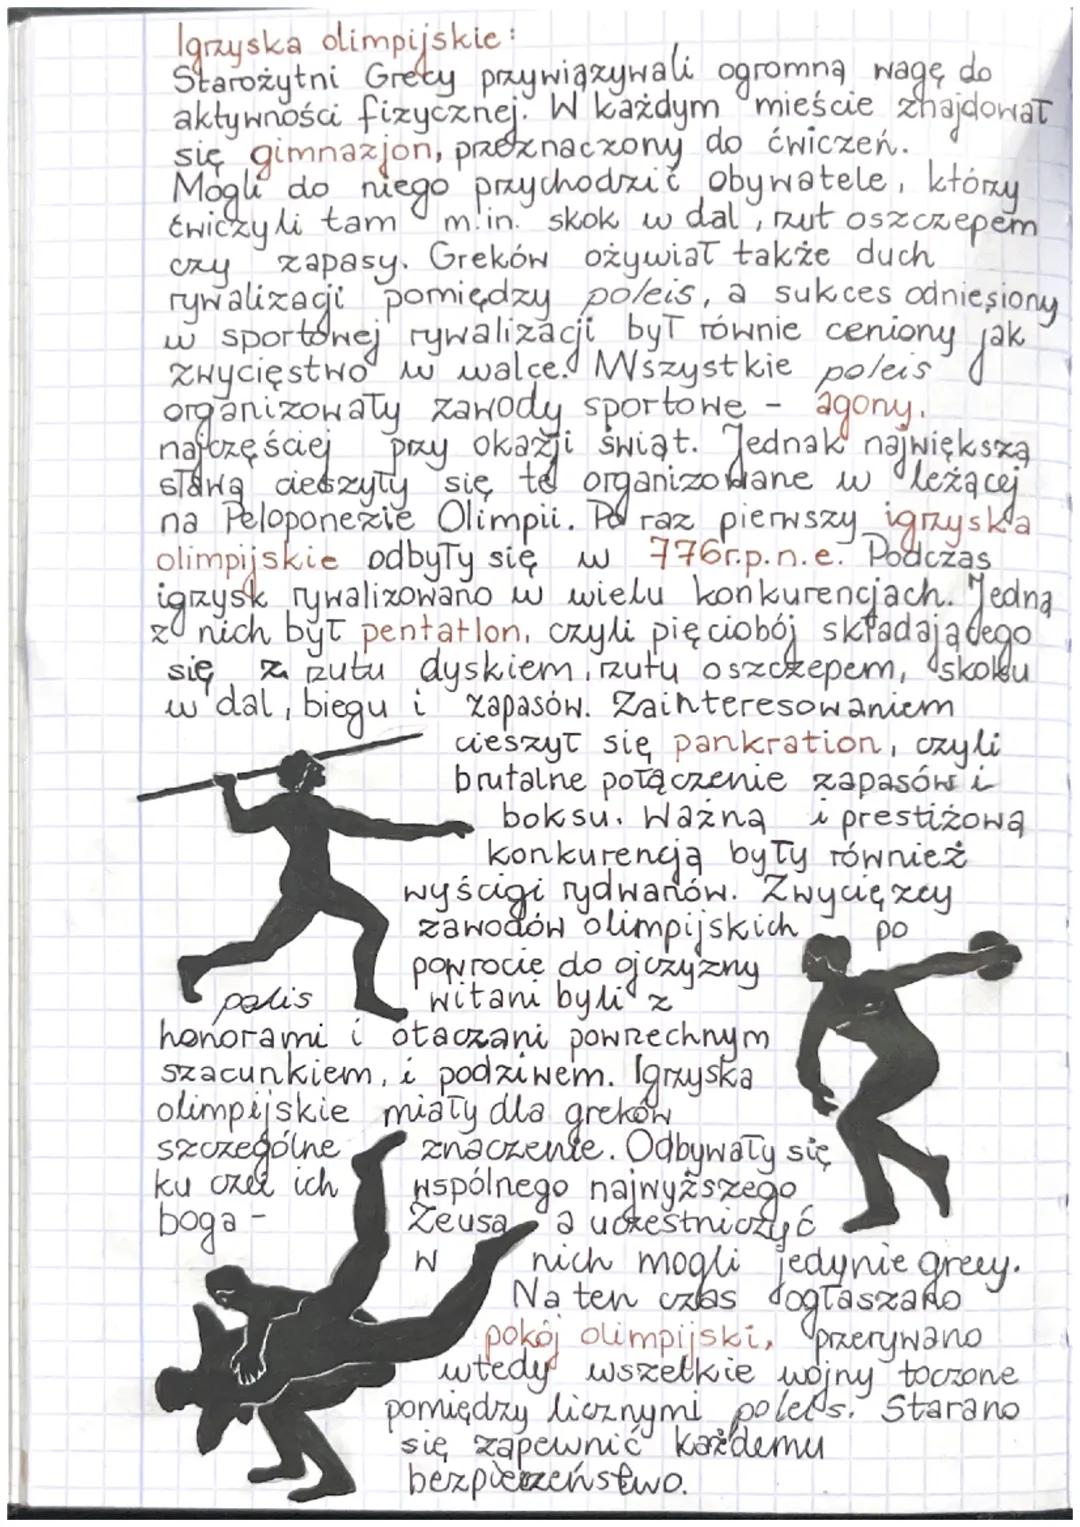 Igrzyska olimpijskie:
Starożytni Grecy przywiązywali ogromną wagę do
aktywności fizycznej. W każdym mieście znajdował
się gimnazjon, przeznaczony do ćwiczeń.
Mogli do niego przychodzić obywatele, którzy
ćwiczyli tam m.in. skok w dal, rzut oszczepem
czy zapasy. Greków ożywiał także duch
rywalizacji pomiędzy poleis, a sukces odniesiony
w sportowej rywalizacji był równie ceniony jak
zwycięstwo w walce. Wszystkie poleis
organizowały zawody sportowe - agony,
najczęściej przy okazji świąt. Jednak największą
sławą cieszyły się te organizowane w leżącej
na Peloponezie Olimpii. Po raz pierwszy igrzyska
olimpijskie odbyły się w 776r.p.n.e. Podczas
igrzysk rywalizowano w wielu konkurencjach. Jedną
z nich był pentatlon, czyli pięciobój składającego
się z rzutu dyskiem, rzutu oszczepem, skoku
w dal, biegu i zapasów. Zainteresowaniem
cieszył się pankration, czyli
brutalne połączenie zapasów i
boksu. Ważną i prestiżową
konkurencją były również
wyścigi rydwanów. Zwycięzcy
zawodów olimpijskich po
powrocie do ojczyzny
polis witani byli z
honorami i otaczani powrzechnym
szacunkiem, i podziwem. Igrzyska
olimpijskie miały dla greków
szczególne znaczenie. Odbywały się
ku czci ich wspólnego najwyższego
boga - Zeusa, a uczestniczyć
w nich mogli jedynie grecy.
Na ten czas ogłaszano
pokój olimpijski, przerywano
wtedy wszelkie wojny toczone
pomiędzy licznymi poleis. Starano
się zapewnić każdemu
bezpieczeństwo.